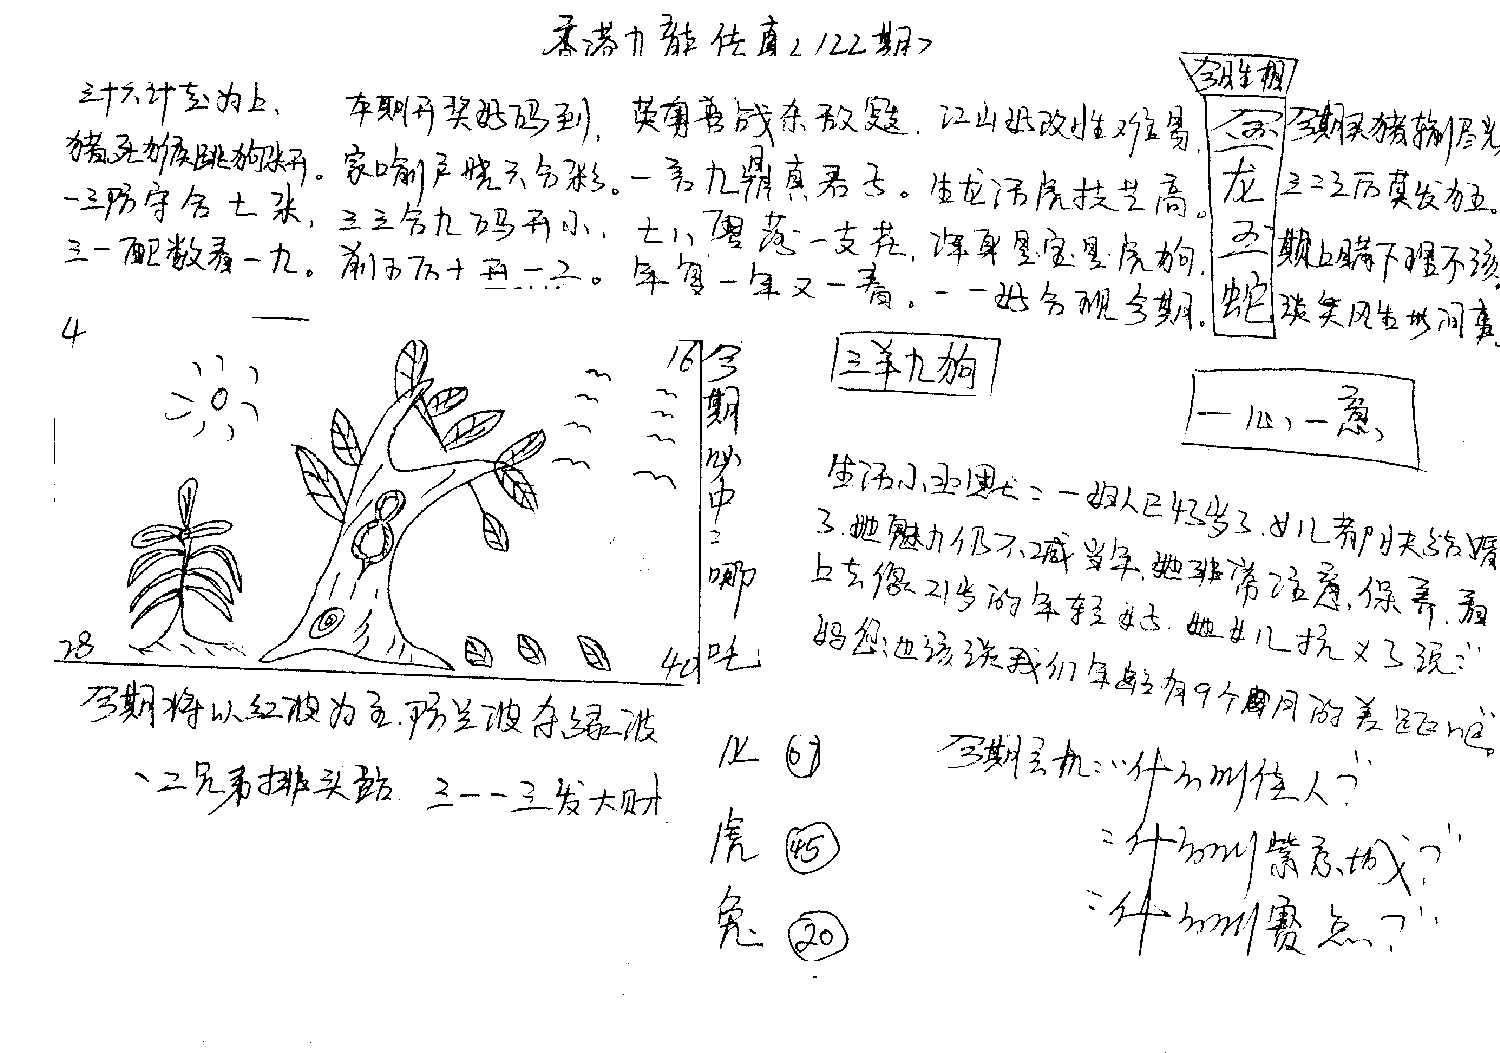 香港九龍传真〈122期〉
今期生相
三十六计走为上、
猪死猴跳狗来开。
一三防守合七张，
三一配数看一九。
本期开奖好码到，
家喻户晓六合彩。
三三合九码开小，
前五后十再一二。
英勇善战杀敌
一言九鼎真君子。
七八
年复一年又一春。
江山好改性难易，
生龙活虎技艺高。
浑身是宝是虎狗，
一一好合现今期。
五
龙
五
蛇
今期买猪输尽光
三二三后莫发五。
瞒上瞒下理不该，
谈笑风生世间事。
4
16
28
40
今期必中：哪吒
三羊九狗
一心一意
生活小幽默：一妇人已43岁了，女儿都快结婚
了，她魅力仍不减当年，她非常注意保养，看
上去像21岁的年轻女子，她女儿抗义了说：“
妈您也该让我们年龄有9个月的差距吧”
今期将以红波为主，防兰波夺绿波
二兄弟排头站 三一一三发大财
虎 45
兔 20
今期玄机：“什么叫佳人？”
：“什么叫紫禁城？”
：“什么叫